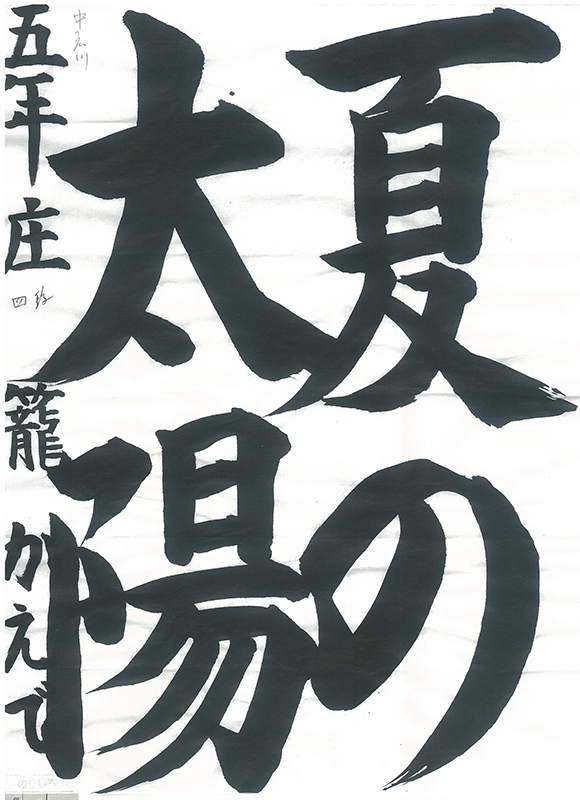 夏の
太陽
五年 庄籠 かえで
中石川
四段